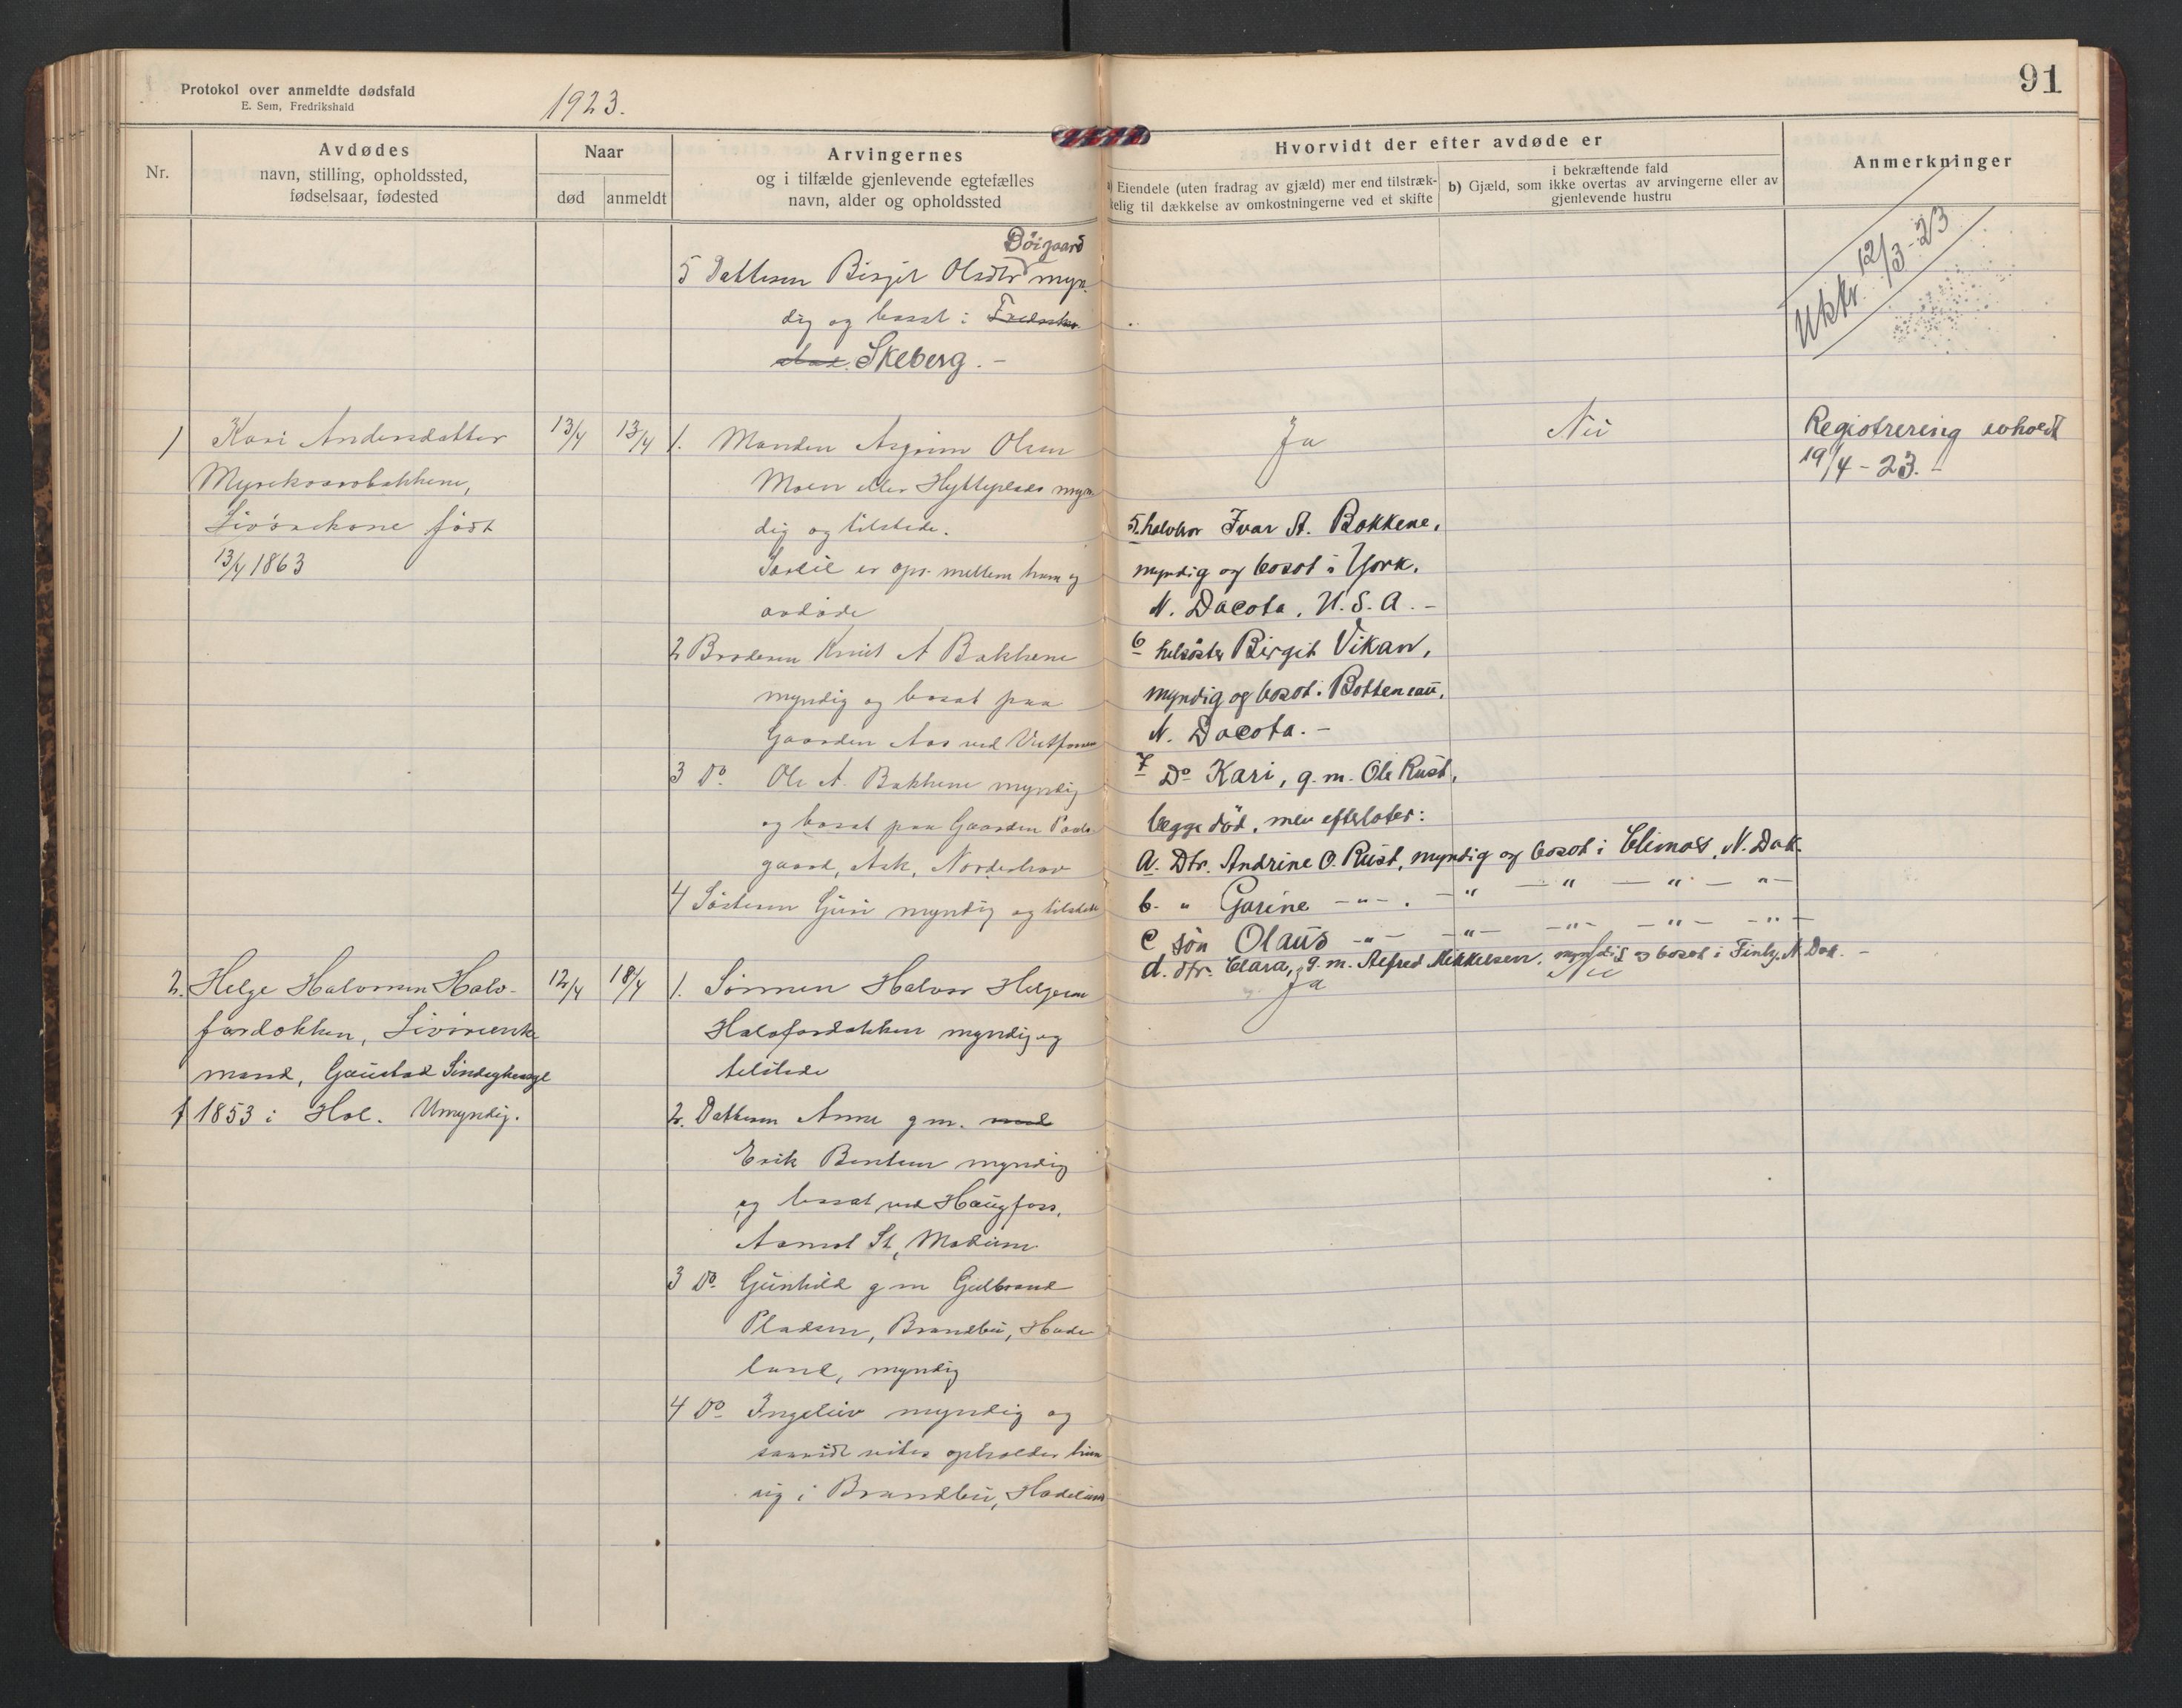 Protokol over anmeldte dødsfald
E. Sem, Fredrikshald
1923.
91
Nr.
Avdødes
navn, stilling, opholdssted,
fødselsaar, fødested
Naar
død
anmeldt
Arvingernes
og i tilfælde gjenlevende egtefælles
navn, alder og opholdssted
Hvorvidt der efter avdøde er
a) Eiendele (uten fradrag av gjæld) mer end tilstræk-
kelig til dækkelse av omkostningerne ved et skifte
i bekræftende fald
b) Gjæld, som ikke overtas av arvingerne eller av
gjenlevende hustru
Anmerkninger
5 Datteren Birgit Olsdtr myn-
dig og bosat i
Skeberg. -
12/3-23
1
Kari Andersdatter
født
13/4 1863
13/4
13/4
1. Manden Asgrim Olsen
Moen eller Hytteplads myn-
dig og tilstede.
Særeie er opr. mellem ham og
avdøde
2 Broderen Knut A Bakkene
myndig og bosat paa
Gaarden Aas ved
3 Do. Ole A. Bakkene myndig
og bosat paa Gaarden
gaard, Ask, Norderhov
4 Søsteren Guri myndig og tilstede
Ja
Nei
Registrering avholdt
19/4-23. -
5. halvbror Ivar A. Bakkene,
myndig og bosat i York,
N. Dacota, U.S.A. -
6 helsøster Birgit Vikan,
myndig og bosat i Bottenau,
N. Dacota. -
7 Do Kari, g.m. Ole Rust,
begge død, men efterlater:
a. Dtr. Andrine O. Rust, myndig og bosat i Climas, N. Dak.
b. " Garine - " - . - " - " - " - " -
c søn Olaus - " - - " - - " - - " - - " -
d. dtr. Clara, g.m. Alfred Mikkelsen, myndig og bosat i Finly, N. Dak. -
2. Helge Halvorsen Halv-
fardokken,
mand, Gaustad Sindsykeasyl
f 1853 i Hol. Umyndig.
12/4
18/4
1. Sønnen Halvor Helgesen
Halvfardokken myndig og
tilstede
2. Datteren Anne g m. med
Erik Bentsen myndig
og bosat ved Haugfoss,
Aamot St, Modum
3 Do. Gunhild g m Gulbrand
Pladsen, Brandbu, Hade-
land, myndig
4 Do. Ingeliv myndig og
saavidt vites opholder hun
sig i Brandbu, Hadeland
Ja
Nei